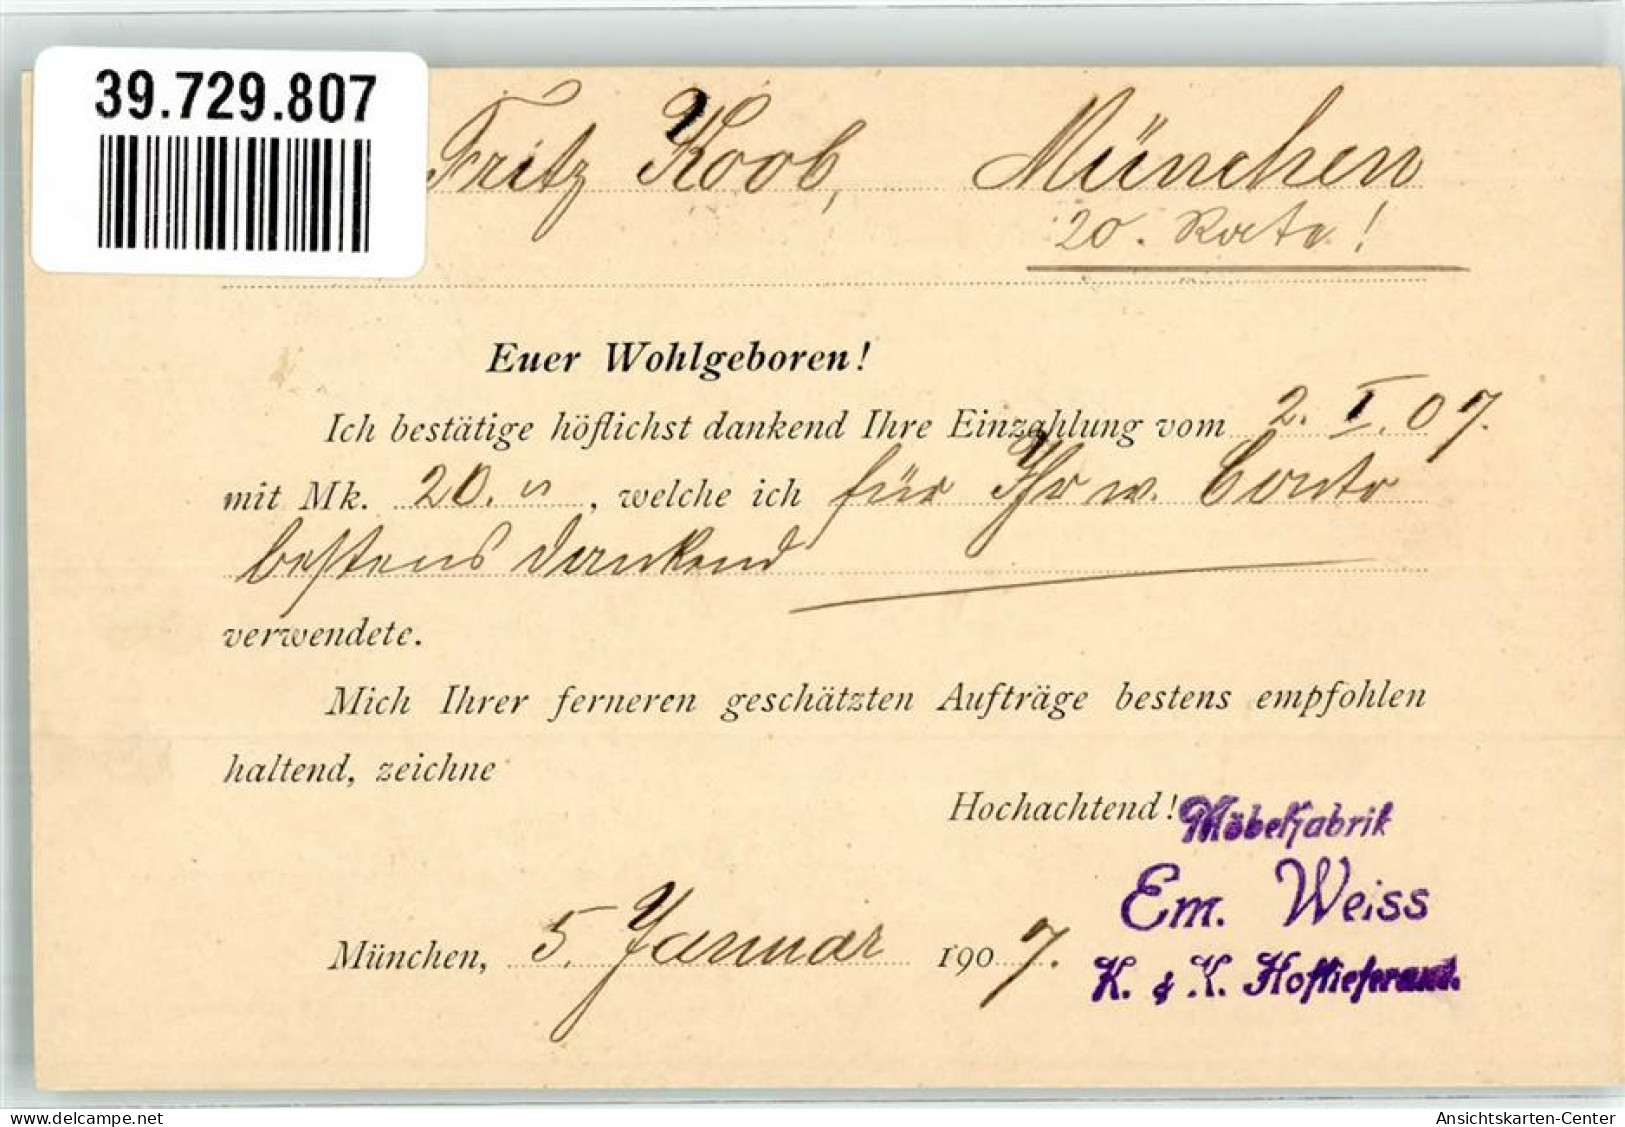 39.729.807
Fritz Koob, München
20. Rate!
Euer Wohlgeboren!
Ich bestätige höflichst dankend Ihre Einzahlung vom 2. I. 07.
mit Mk. 20. " , welche ich für Ihr w. Conto
bestens dankend
verwendete.
Mich Ihrer ferneren geschätzten Aufträge bestens empfohlen
haltend, zeichne
Hochachtend!
Möbelfabrik
Em. Weiss
K. & K. Hoflieferant.
München, 5. Januar 1907.
oldthing.com
Ansichtskarten-Center